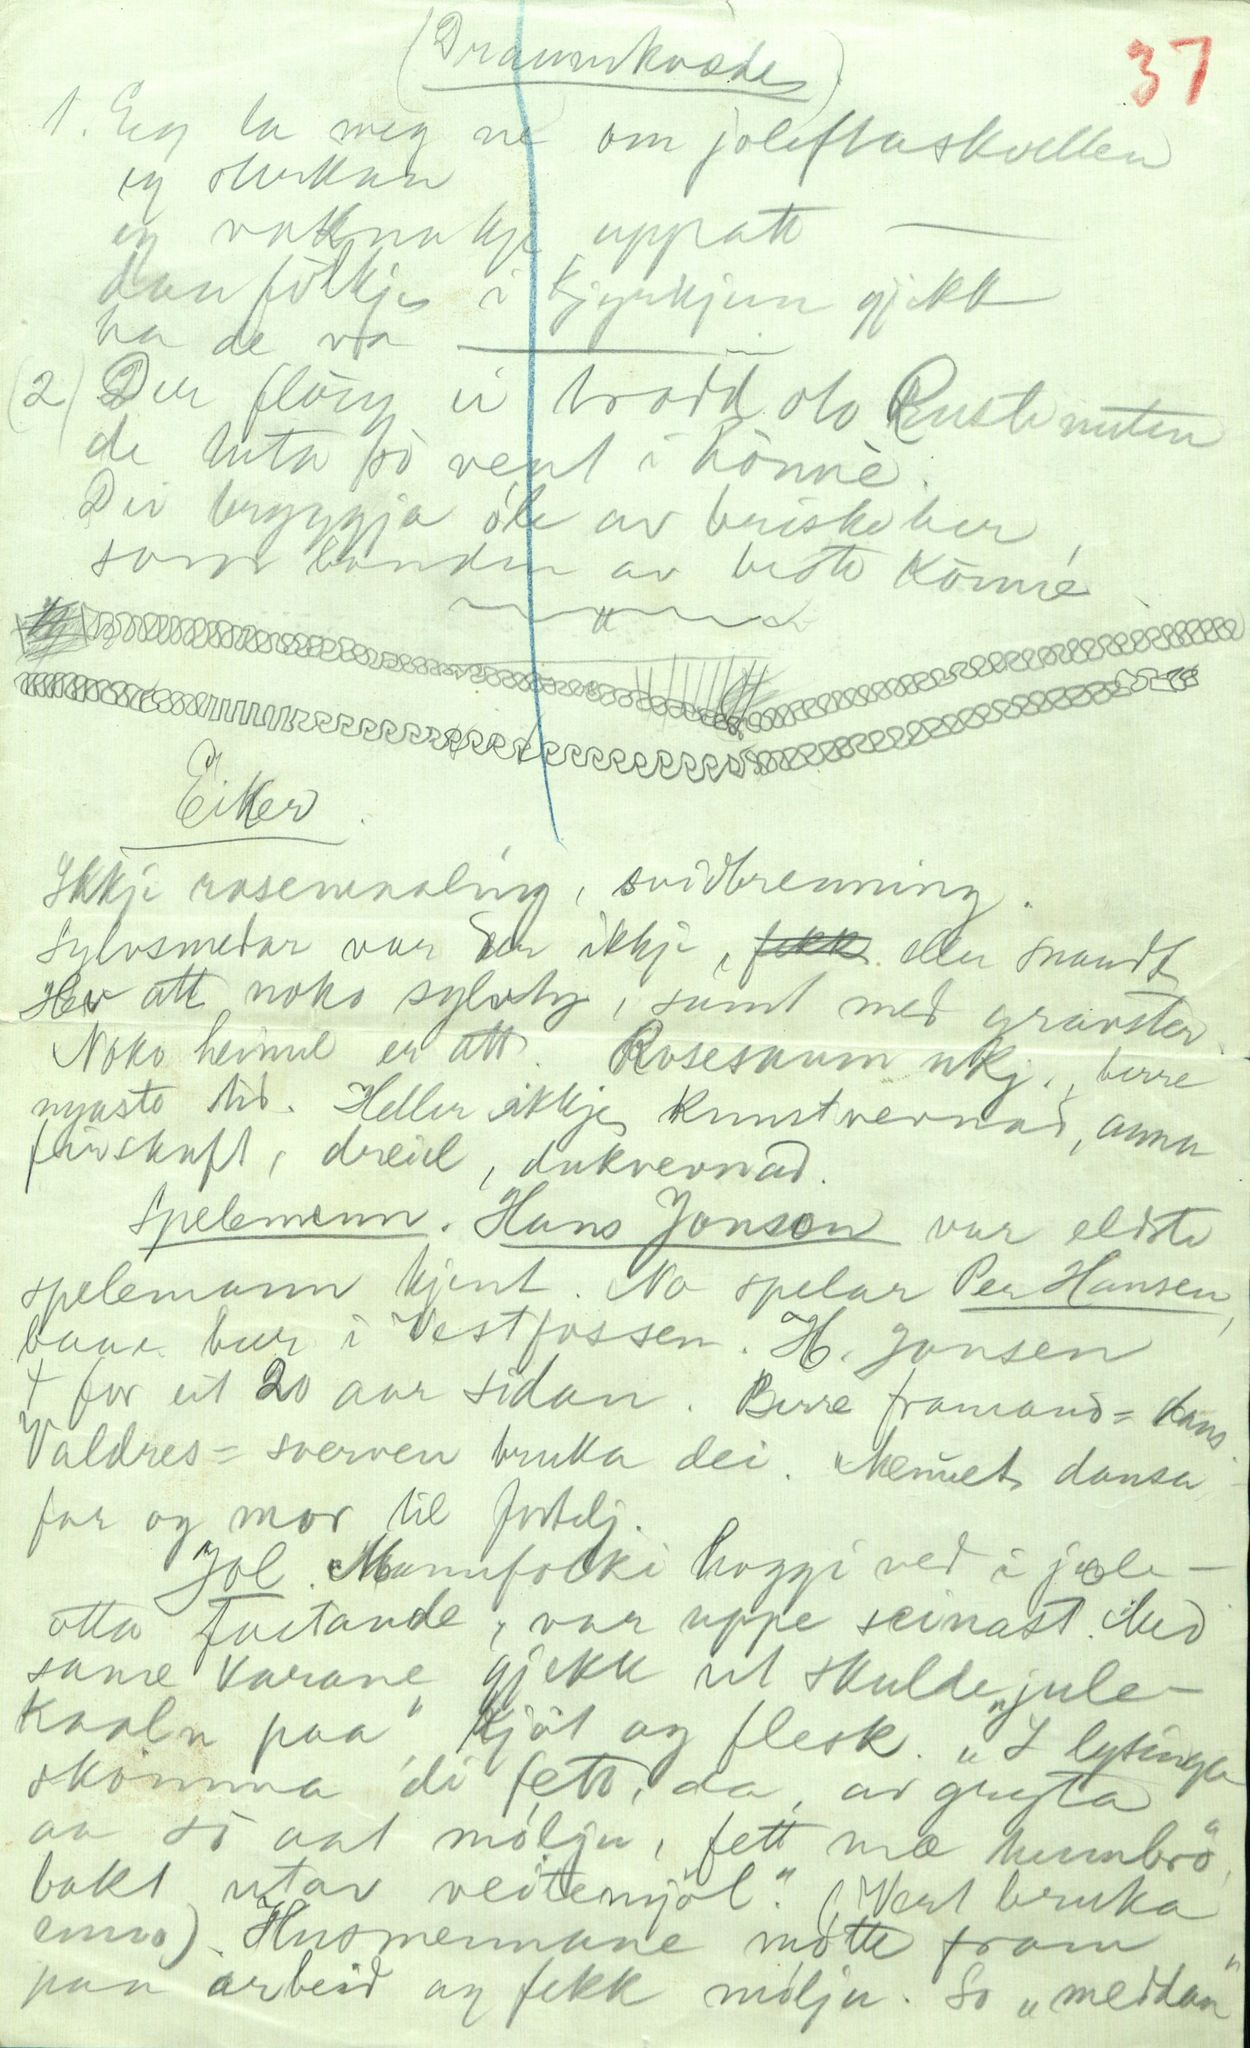 (Draumkvæde)
37
1. Eg la meg ne om joleftaskvellen
eg
eg vaknakje uppatt
dan fölkje i kjyrkjun gjekk
ha de va
(2) Der flöug ei tradd olo Rustenuten
de luta so vent i hönne.
Dei bryggja öle av briskeber,
som bonden av beste könne
Eiker.
Ikkje rosemaaling, svidbrenning.
Sylvsmedar var her ikkje, fekk eller smaudt
Her att noko sylvty, sumt med gravster.
Noko heimel er att. Rosesaum ikkj., berre
nyaste tid. Heller ikkje kunstvevnad, anna
firskaft, dreiel, dukvevnad.
Spelemenn. Hans Jonson var eldste
spelemann kjent. No spelar Per Hansen,
bur i Vestfossen. H. Jonsen
† for eit 20 aar sidan. Berre framand= dans
Valdres= sverven bruka dei. Menuet dansa
far og mor til
Jol. Mannfolki hoggi ved i jole-
otta fastande, var uppe seinast. Med
same karane gjekk ut skulde „jule-
kaaln paa" kjöt og flesk. „I lysinga
skomma di fett, da, av gryta
aa so aat mölju, fett mæ humbrö"
bakt utav veitemjöl". (Vert bruka
enno). Husmennane møtte fram
paa arbeid og fekk mölju. So „meddan"